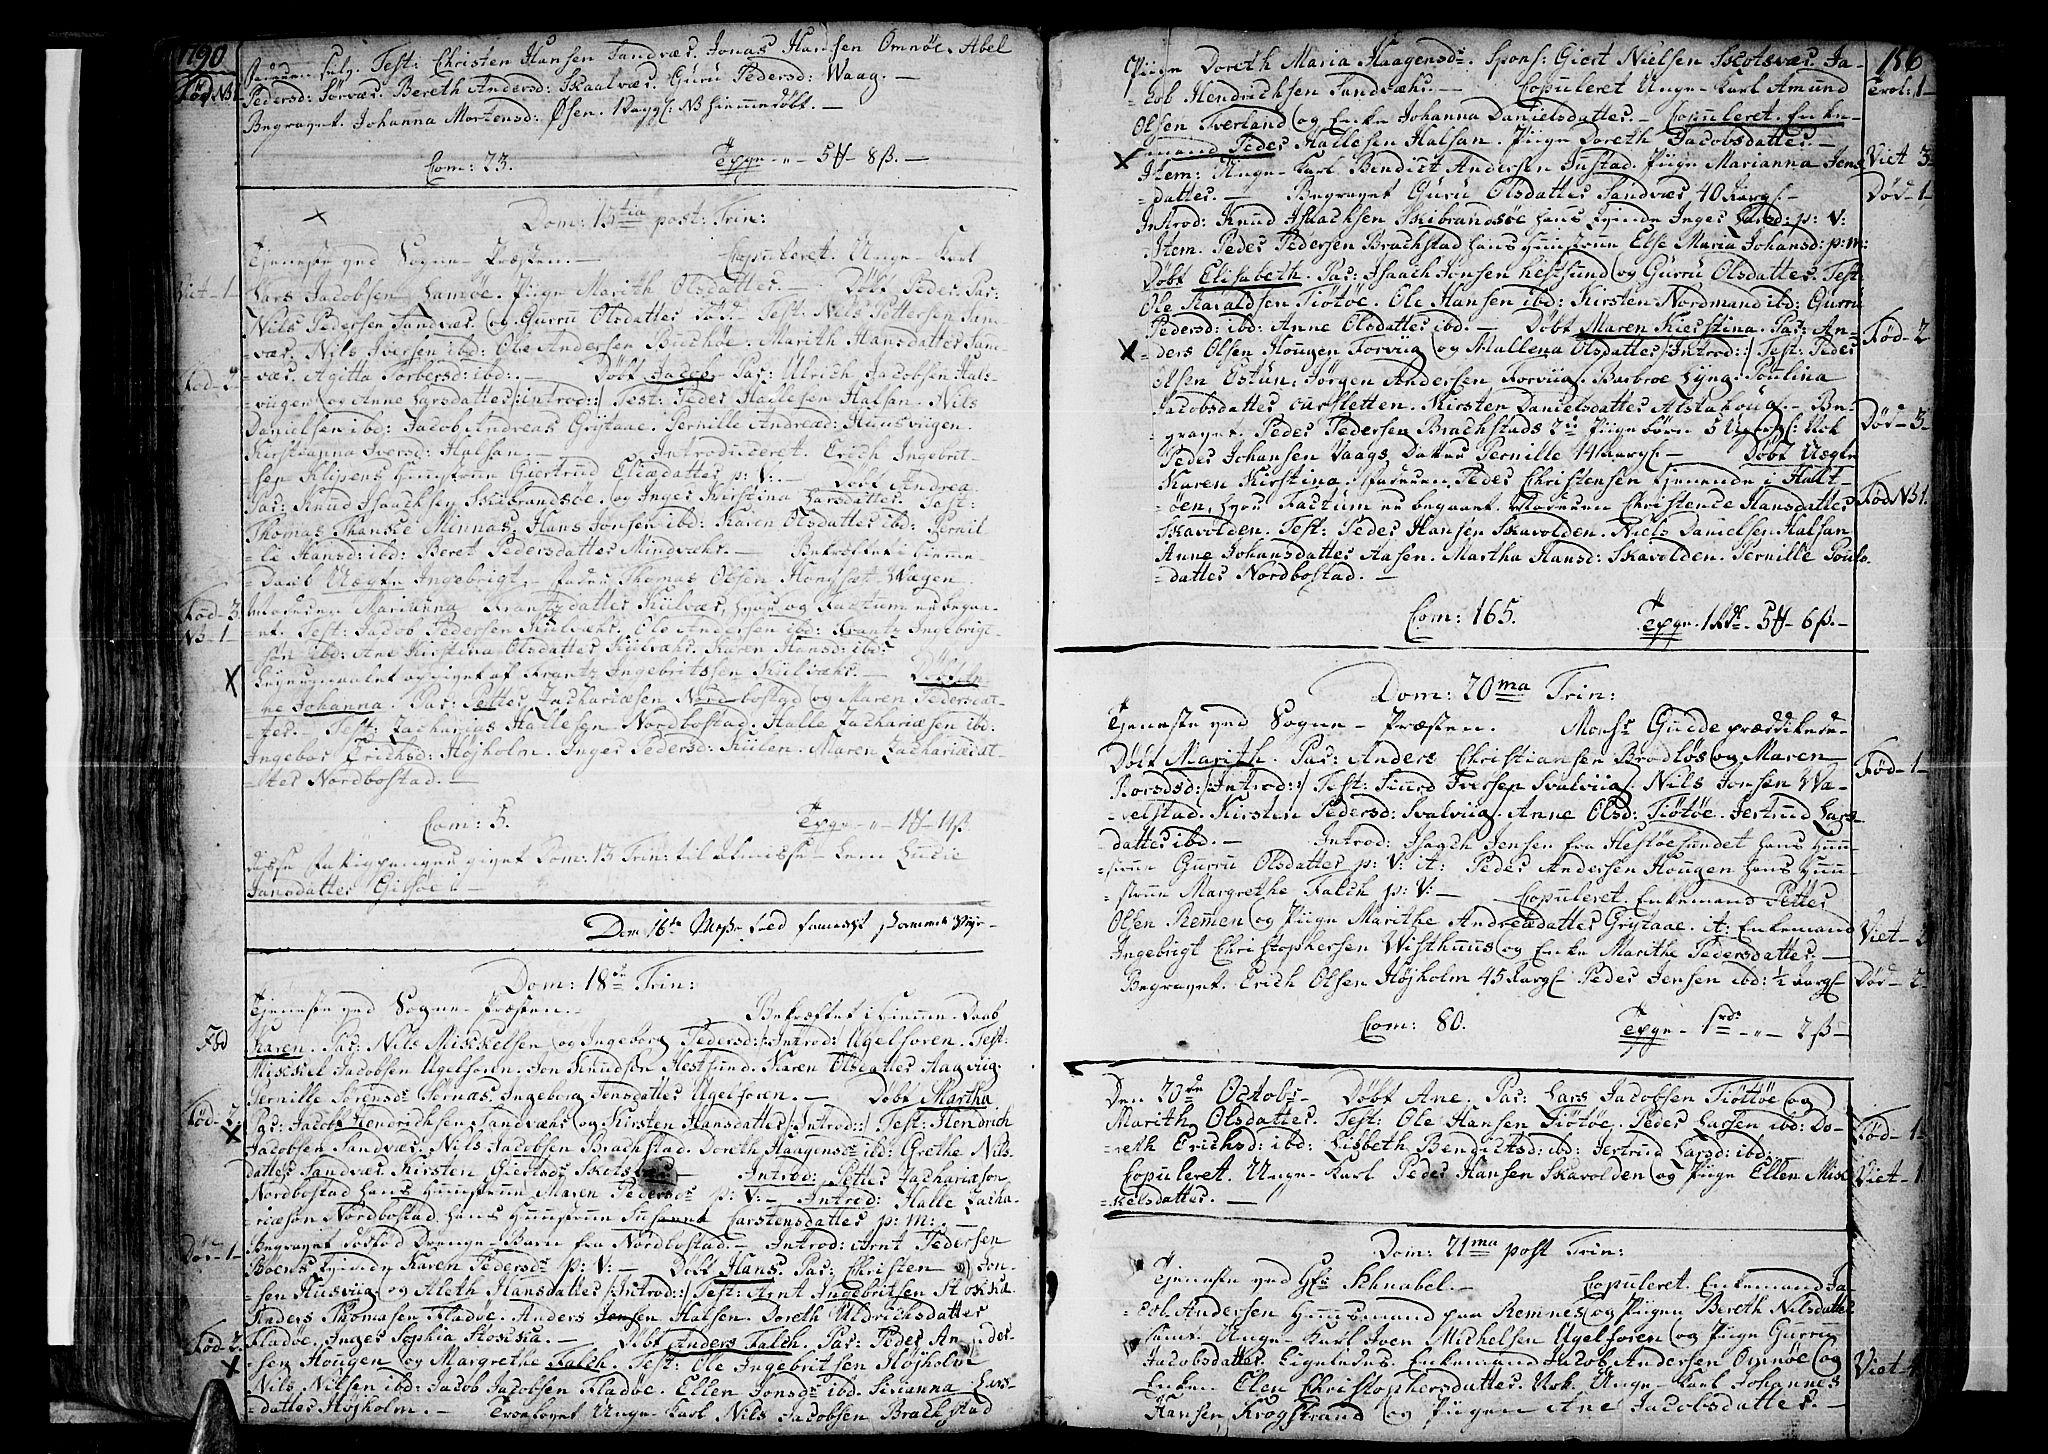 1790
Test: Christen Hansen Sandvær. Jonas Hansen Omnöe. Abel
Fød NB 1
Pedersd: Sørvær. Bereth Andersd: Skaalvær. Guru Pedersd: Waag. —
Begravet. Johanna Mortensd: Øsen. 1 Dagg: NB hiemmedøbt. —
Com: 23. Texgr - " - 5 ℔ - 8 ß. —
Dom: 15tia post: Trin:
Tjeneste ved Sogne-Præsten. — Copuleret. Unge-Karl
Viet - 1 -
Lars Jacobsen Hamöe. Piige Marith Olsdatter. — Døbt Peder. Par:
Nils Pedersen Sandvær. og Gurru Olsdatter Test: Nils Pettersen San-
vær. Nils Iversen ibd: Ole Andersen Buchöe. Marith Hansdatter San-
vær. Agitta Torbersd: ibd: — Døbt Jacob. Par: Ulrich Jacobsen Hals-
viigen og Anne Larsdatter /:introd:/ Test: Peder Hallesen Halsan. Nils
Danielsen ibd: Jacob Andreas Grytaae. Pernille Andreæd: Huusviigen.
Kirstianna Iversd: Halsan. — Introduceret. Erich Ingebrit-
sen Klipens Huustrue Giertrud Eliædatter p: V: — Døbt Andrea
Par: Knud Isaachsen Skibrandsöe. og Inger Kirstina Larsdatter. Test:
Thomas Hansen Minnas. Hans Jonsen ibd: Karen Olsdatter ibd: Pernil-
le Hansd: ibd: Beret Pedersdatter Mindvæhr. — Bekræftet i Hiemme-
Daab Uægte Ingebrigt, Fader Thomas Olsen Waagen
Fød - 3.
NB - 1
Moderen Marianna Frantzdatter Kulvær, hvor og Factum er begaa-
et. Test: Jacob Pedersen Kulvæhr. Ole Andersen ibd: Frantz Ingebrigt-
sön ibd: Ane Kirstina Olsdatter Kulvæhr. Karen Hansd: ibd:
angivet af Frantz Ingebritsen Kulvæhr. — Døbt An-
ne Johanna. Par: Petter Zachariæsen Nordbostad og Maren Pedersdat-
ter. — Test: Zacharias Hallesen Nordbostad. Halle Zachariæsen ibd.
Ingebor Erichsd: Højholm. Inger Pedersd: Kulen. Maren Zachariædat-
ter Nordbostad. —
Com: 5. Texgr - " - 1 ℔ - 14 ß
disse fattigpenger givet Dom: 13 Trin: til Almisse-Lem Lucie
Jansdatter Givöe. —
Dom: 18de Trin:
Tjeneste ved Sogne-Præsten. — Bekræftet i Hiemme-Daab
Karen. Par: Nils Mikkelsen og Ingeborg Pedersd: /:Introd:/ Ugelforen. Test:
Mikkel Jacobsen Ugelforen. Jon Knudsen Hestsund. Karen Olsdatter Haavig.
Pernille Sörensd: Fornæs. Ingeborg Jonsdatter Ugelforen. — Døbt Martha
Par: Jacob Hendrichsen Sandvæhr og Kirsten Hansdatter /:Introd:/ Test: Hendrich
Jacobsen Sandvær. Nils Jacobsen Brachstad. Doreth Haagensdr ibd: Grethe Nils-
datter Sandvær. Kirsten Giertsdr Skotsvær. — Introd: Petter Zachariæsön
Nordbostad hans Huustrue Maren Pedersdr p: V: — Introd: Halle Zacha-
riæsön Nordbostad. hans Huustrue Susanna Carstensdatter p: M: —
Død - 1 -
Begravet dødfød Drenge-Barn fra Nordbostad. — Introd: Arnt Pedersen
Boens qvinde Karen Pedersdr p: V: — Døbt Hans. Par: Christen Jon-
sen Huusviig og Aleth Hansdatter /:Introd:/ Test: Arnt Ingebritsen Stokkia.
Anders Thomasen Fladöe. Anders Jensen Halsen. Doreth Uldrichsdatter
Fød - 2.
Fladöe. Inger Sophia Stokkia. — Døbt Anders Falch. Par: Peder Ander-
sen Hougen og Margrethe Falch. Test: Ole Ingebritsen Højholm
Nils Nilsen ibd: Jacob Jacobsen Fladöe. Ellen Jonsdr ibd. Sirianna Lars-
datter Højholm. — Trolovet Unge-Karl Nils Jacobsen Brachstad
156
Piige Doreth Maria Haagensdr. Spons: Giert Nielsen Skotsvær. Ja-
Trol: 1 -
cob Hendrichsen Sandvæhr. — Copuleret Unge-Karl Amund
Olsen Tverland og Enke Johanna Danielsdatter. — Copuleret. Enke-
mand Peder Hallesen Halsan. Piige Doreth Jacobsdatter. —
Viet - 3 -
Item: Unge-Karl Bendict Andersen Piige Marianna Jens-
Død - 1 -
datter. — Begravet Guru Olsdatter Sandvær 40 Aarg: —
Introd: Knud Isaachsen Skibrandsöe hans qvinde Inger Larsd: p: V:
Item. Peder Pedersen Brachstad hans Huustrue Else Maria Johansd: p: m:
Døbt Elisabeth. Par: Isaach Jonsen Hestsund og Gurru Olsdatter. Test:
Ole Haraldsen Tiötöe. Ole Hansen ibd: Kirsten Nordmand ibd: Gurru
Pedersd: ibd: Anne Olsdatter ibd. — Døbt Maren Kierstina. Par: An-
Fød - 2
ders Olsen Hougen Forviig og Mallena Olsdatter /:Introd:/ Test: Peder
Olsen Estun. Jörgen Andersen Forviig. Barbroe Lyng. Poulina
Jacobsdatter ourstetten. Kirsten Danielsdatter Alstahoug. — Be-
Død - 3 -
gravet. Peder Pedersen Brachstads Piige børn 5 Uger: Nok
Peder Johansen Vaags Datter Pernille 14 Aarg: — Døbt Uægte
Karen Kirstina. Faderen Peder Christensen tjenende i Halt-
Fød NB 1.
öen, hvor Factum er begaaet. Moderen Christence Hansdatter
Skavolden. Test: Peder Hansen Skavolden. Niels Danielsen Halsan
Anne Johansdatter Aasen. Martha Hansd: Skavolden. Pernille Pouls-
datter Nordbostad. —
Com: 165. Texgr - 1 Rdr. 5 ℔ - 6 ß. —
Dom: 20ma Trin:
Tjeneste ved Sogne-Præsten. Monsr Gudde prædikede.
Fød - 1 -
Døbt Marith. Par: Anders Christiansen Brodlös og Maren
Borsdsd: /:Introd:/ Test: Siurd Iversen Svalviig. Nils Jonsen Wa-
velstad. Kirsten Pedersd: Svalviig. Anne Olsd: Tiötöe. Jertrud Lars-
datter ibd. — Introd: Isach Jensen fra Hestöesundet hans Huu-
strue Gurru Olsdatter p: V: it: Peder Andersen Hougen hans Huu-
strue Margrethe Falch p: V: — Copuleret. Enkemand Petter
Olsen Remen og Piige Marithe Andreædatter Grytaae. it: Enkemand
Viet - 2
Ingebrigt Christophersen Wisthuus og Enke Marithe Pedersdatter. —
Død - 2.
Begravet. Erich Olsen Højholm 45 Aarg: Peder Jensen ibd: ½ Aarg:
Com: 80. Texgr - 1 rdr - " - 2 ß —
Den 20de Octobr. Døbt Ane. Par: Lars Jacobsen Tiöttöe og
Marith Olsdatter. Test: Ole Hansen Tiötöe. Peder Larsen ibd: Do-
Fød - 1 -
reth Erichsd: ibd: Lisbeth Bendictsd: ibd: Jertrud Larsd: ibd:
Copuleret. Unge-Karl Peder Hansen Skavolden og Piige Ellen Mik-
Viet - 1
kelsdatter. —
Dom: 21ma post Trin:
Tjeneste ved Hr Schnabel. — Copuleret. Enkemand Ja-
cob Andersen Huusmand paa Remnes og Piigen Bereth Nilsdatter
samt Unge-Karl Joen Michelsen Ugelforen og Piige Gurru
Jacobsdatter. Ligeledes. Enkemand Jacob Andersen Omnöe og
Viet - 4
Enken Elen Christophersdatter. Nok. Unge-Karl Johannes
Hansen Krogstrand og Piigen Ane Jacobsdatter. —